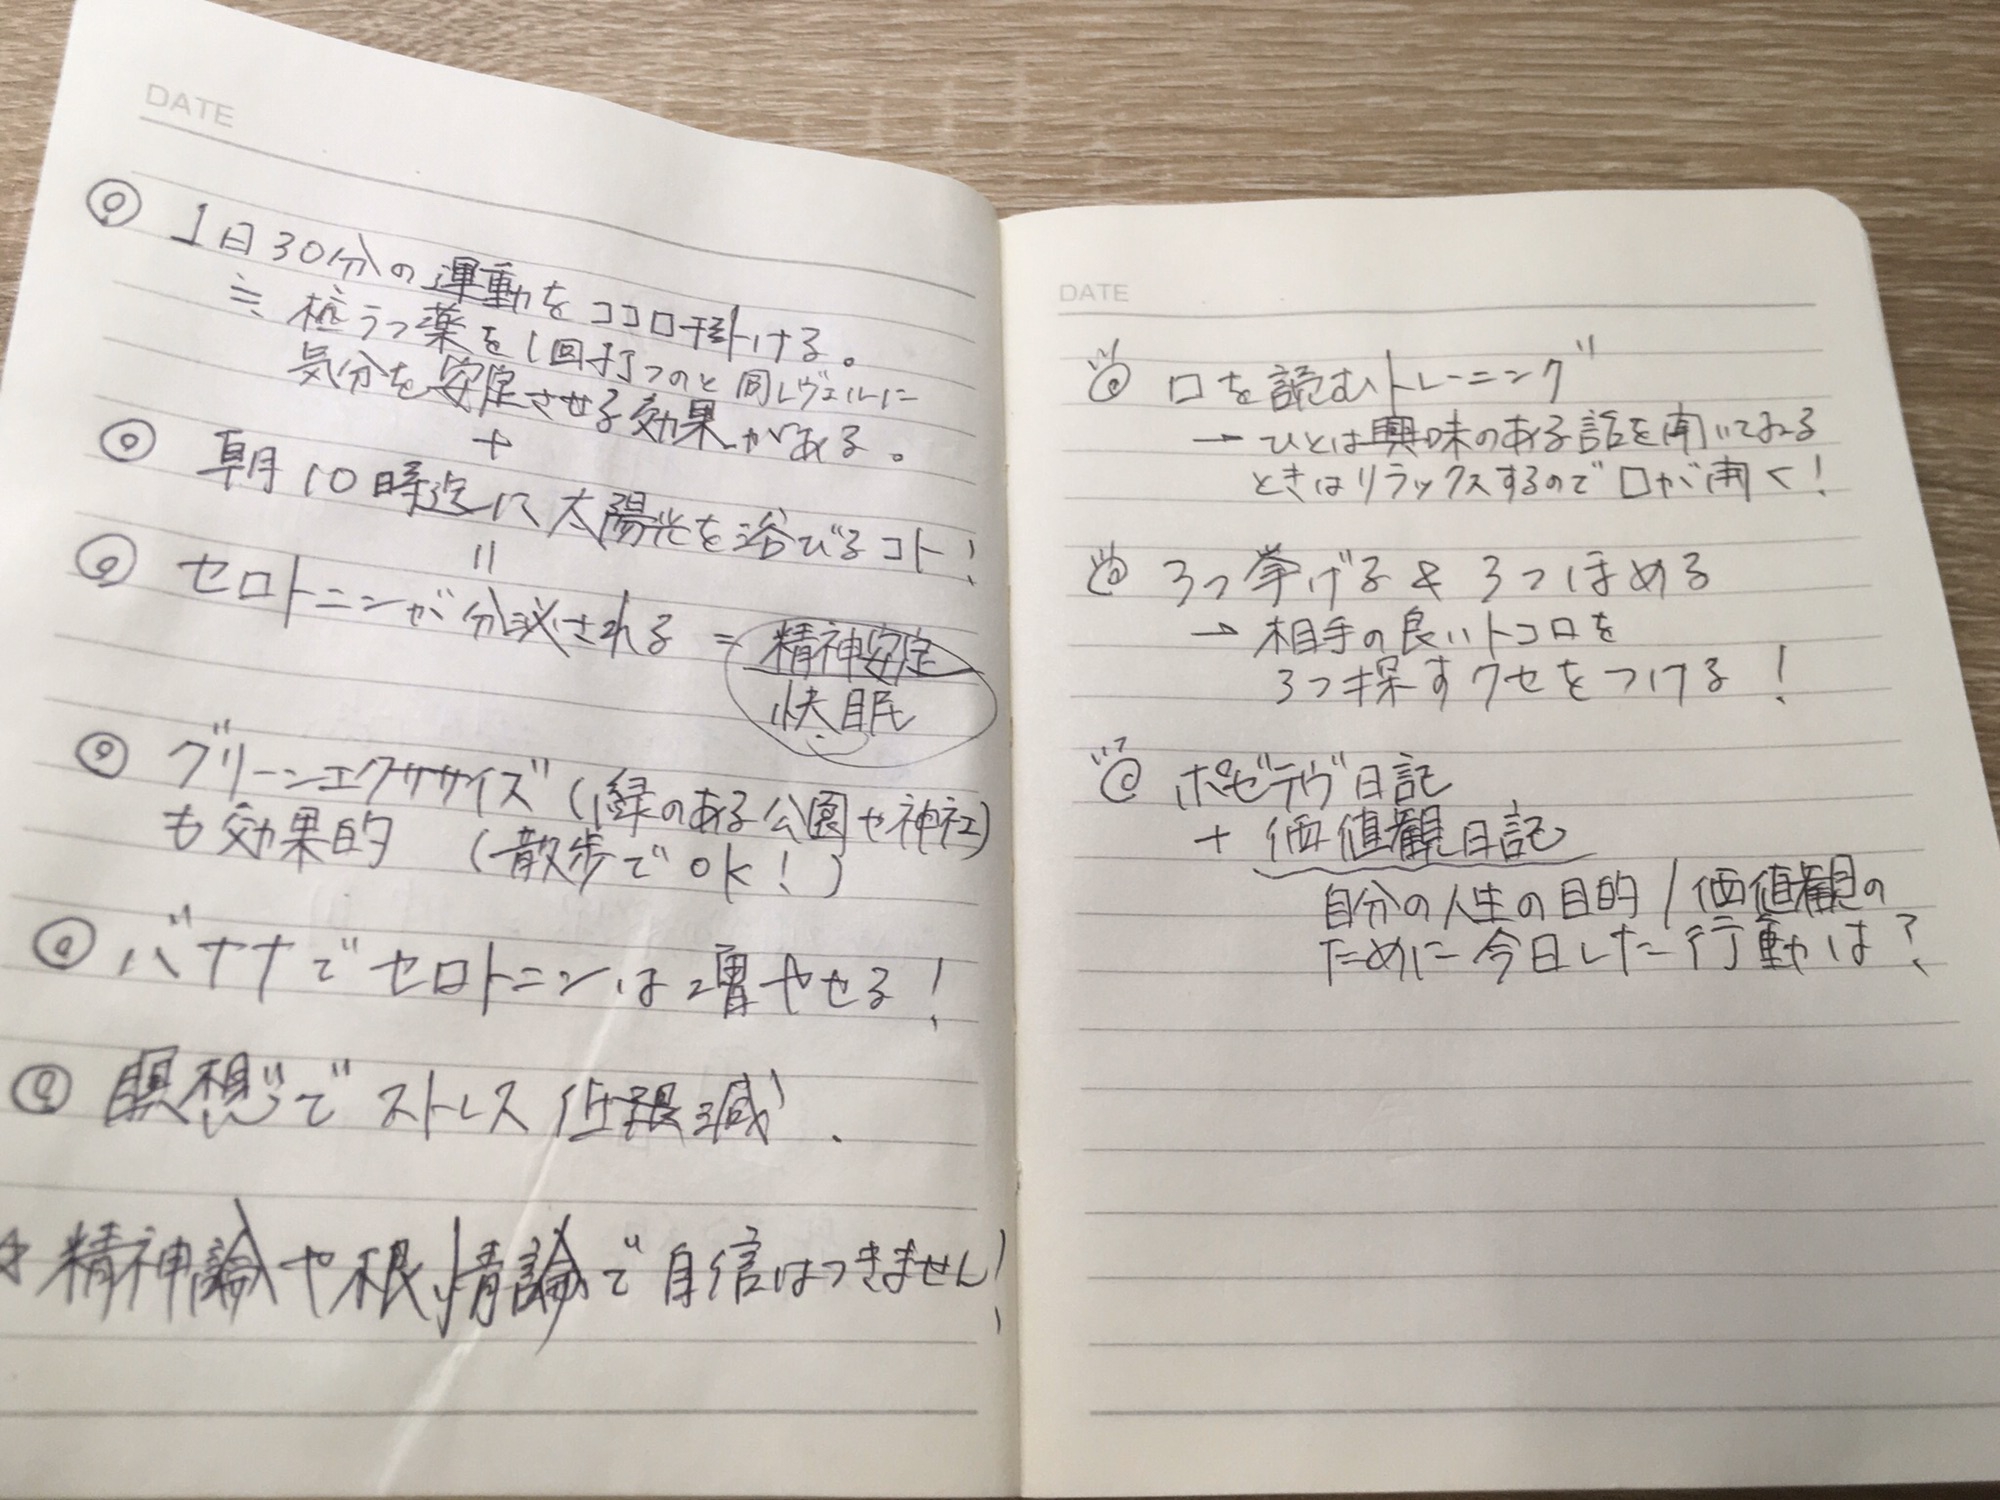 DATE
◎ 1日30分の運動をココロ掛ける。
≒ 抗うつ薬を1回打つのと同レヴェルに
気分を安定させる効果がある。
+
◎ 朝10時迄に太陽光を浴びるコト!
||
◎ セロトニンが分泌される = 精神安定
快眠
◎ グリーンエクササイズ(緑のある公園や神社)
も効果的 (散歩でOK!)
◎ バナナでセロトニンは増やせる!
◎ 瞑想でストレス低減.
☆ 精神論や根情論で自信はつきません!
DATE
◎ 口を読むトレーニング
→ ひとは興味のある話を聞いてゐる
ときはリラックスするので口が開く!
◎ 3つ挙げる & 3つほめる
→ 相手の良いトコロを
3つ探すクセをつける!
◎ ポゼテヴ日記
+ 価値観日記
自分の人生の目的/価値観の
ために今日した行動は?